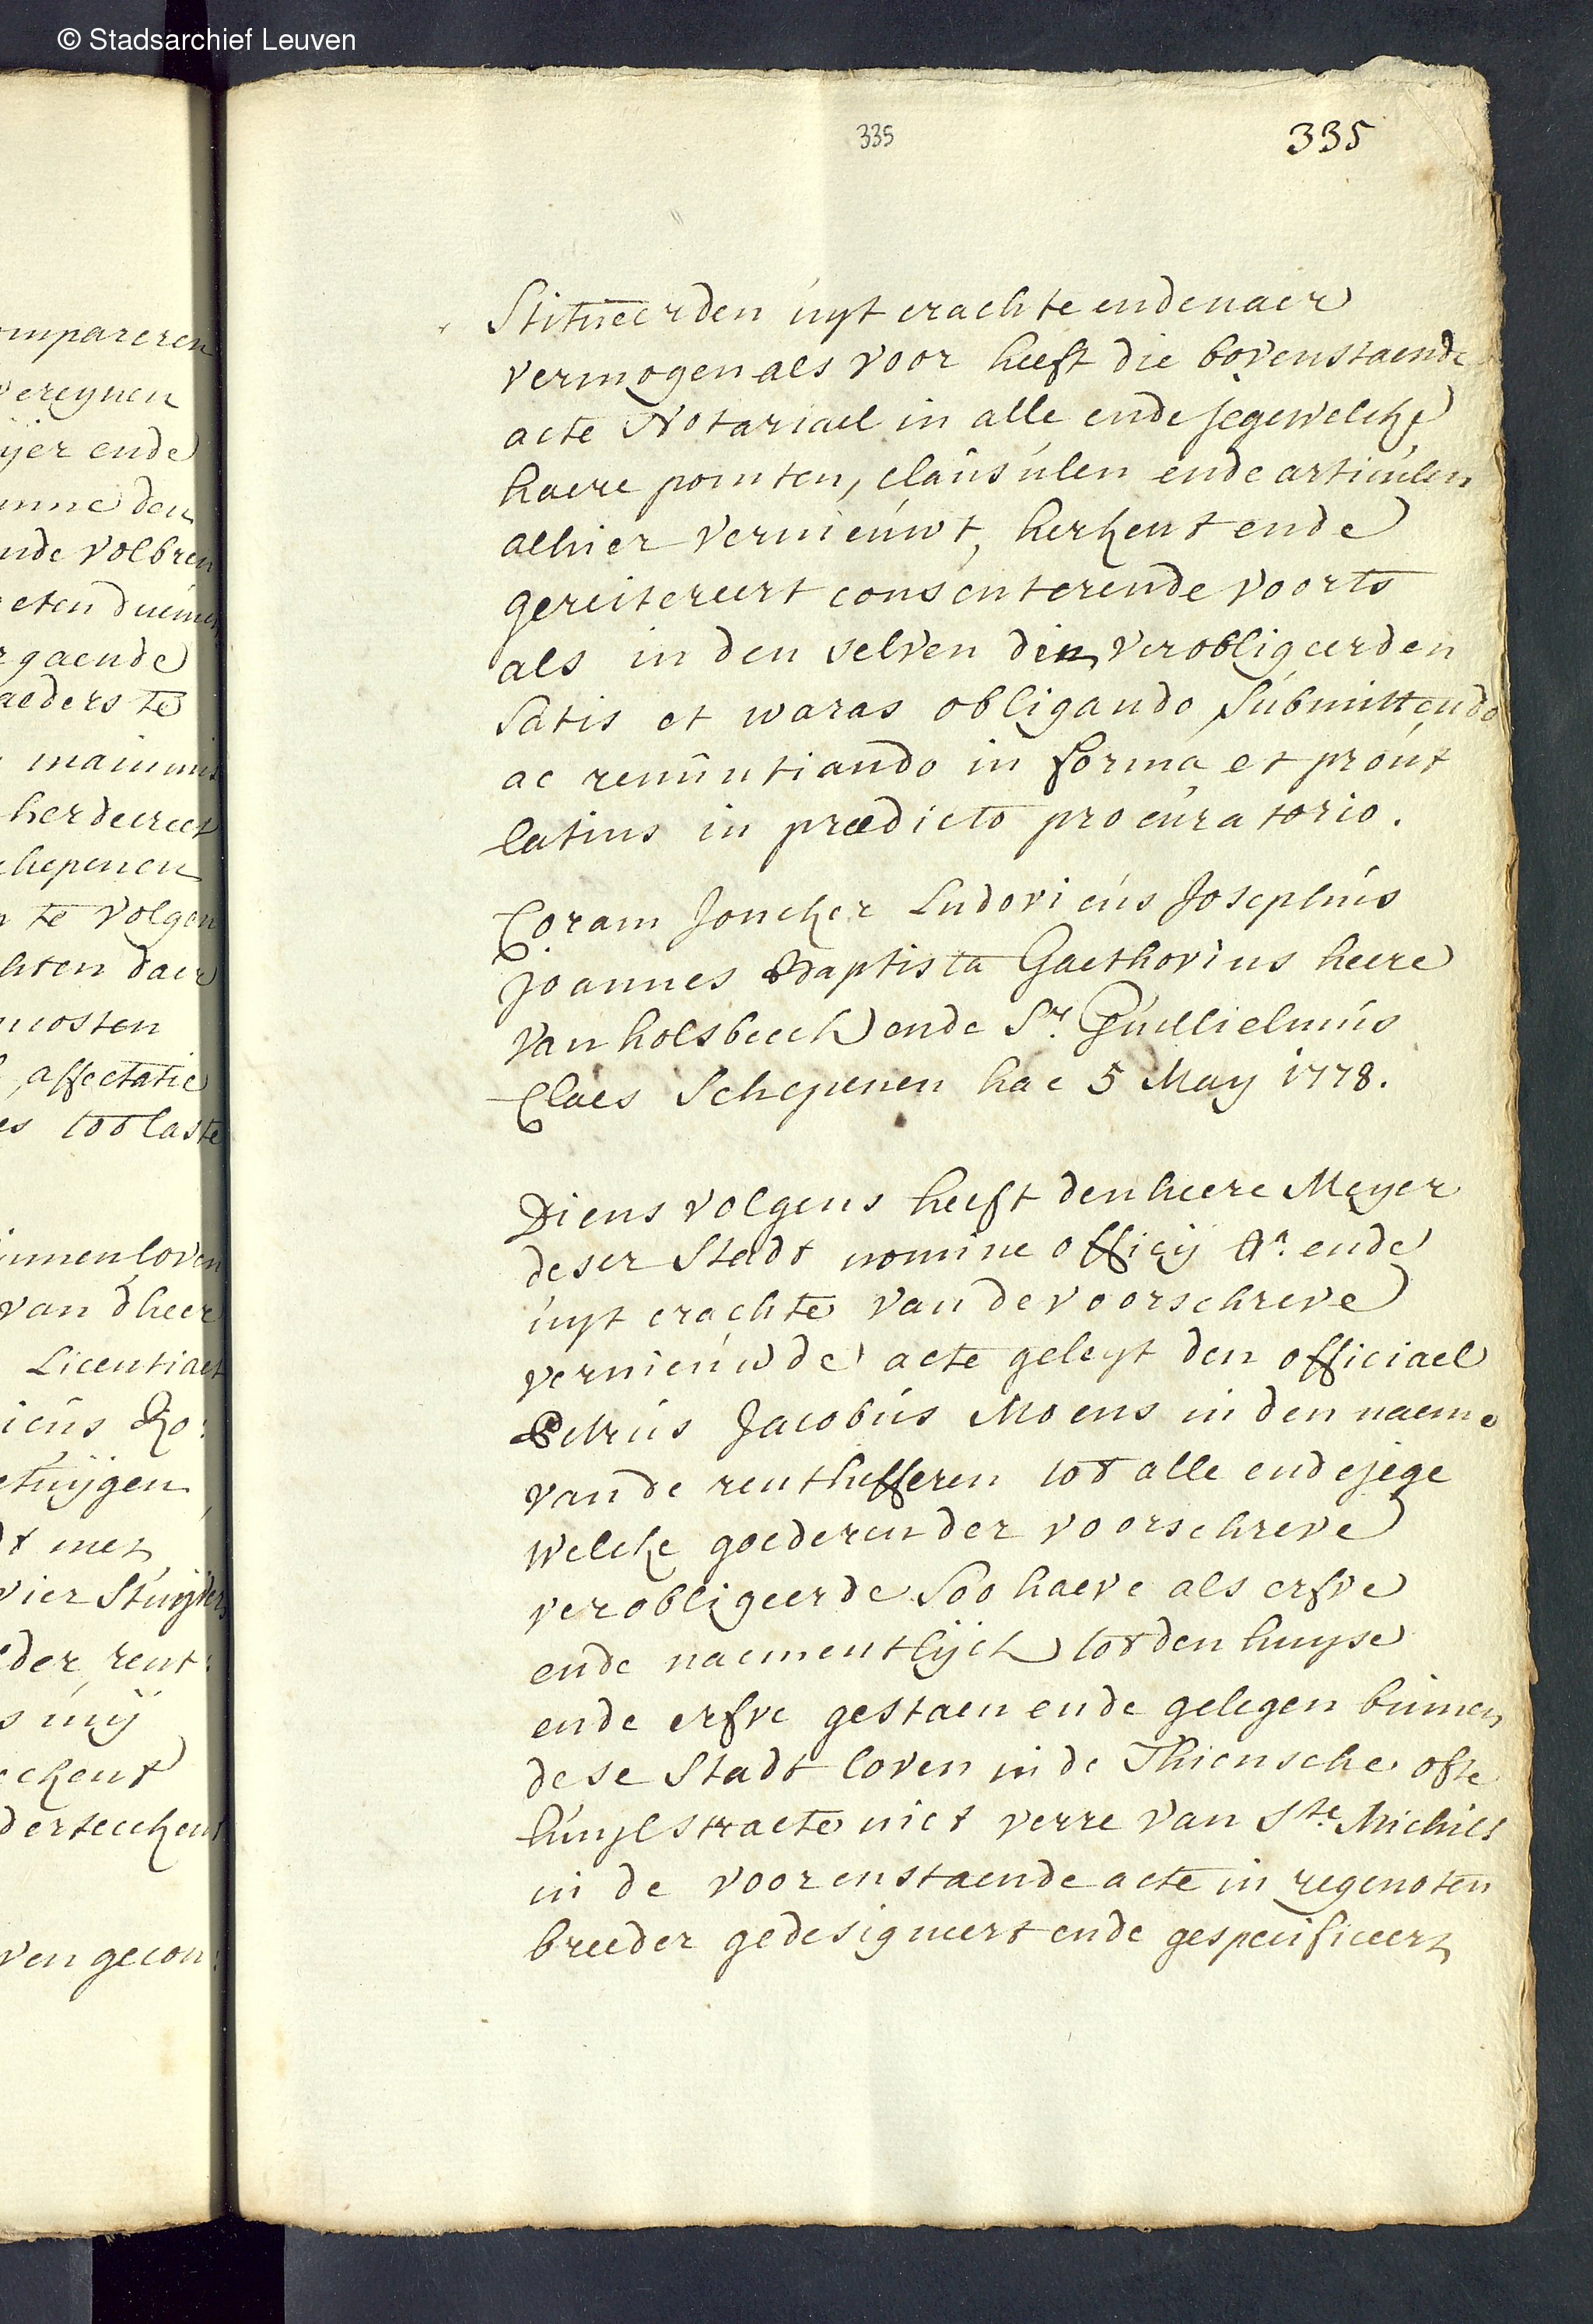 © Stadsarchief Leuven
335
335
mpareren
vereynen
ijer ende
mme den
nde volbren
rgaende
aeders te
mainmis
herdecreet
chepenen
te volgen
hten daer
ncosten
affectatie
es tot laste
innen loven
van dheer
Licentiaet
icús Ro:
etúijgen
t met
vier Stúyvers
lder, rent:
s mij
eckent
derteeckent
ven gecon:
Stitúeerden úyt crachte ende naer
vermogen als voor heeft die bovenstaende
acte Notariael in alle ende jegewelcke
haere pointen, claúsúlen ende articúlen
alhier verniéúwt, herkent ende
gereitereert consenterende voorts
als in den selven den verobligeerden
Satis et waras obligando súbmittendo
ac renúntiando in forma et proút
latius in prædicto procúratorio.
Coram Joncker Ludovicús Josephús
Joannes Baptista Gaethovius heere
van holsbeeck ende Sr. Gúillielmús
Claes Schepenen hac 5 May 1778.
Diens volgens heeft den heere Meyer
deser Stadt nomine officij &a. ende
úyt crachte van de voorschreve
verniéúwde acte geleyt den officiael
Petrús Jacobús Moens in den naeme
van de rentheffere tot alle ende jege
welcke goederen der voorschreve
verobligeerde Soo haeve als erfve
ende naementlijck tot den huyse
ende erfve gestaen ende gelegen binnen
dese Stadt loven in de Thiensche ofte
húylstraete niet verre van Ste. Michiels
in de voorenstaende acte in regenoten
breeder gedesigneert ende gespecificeert